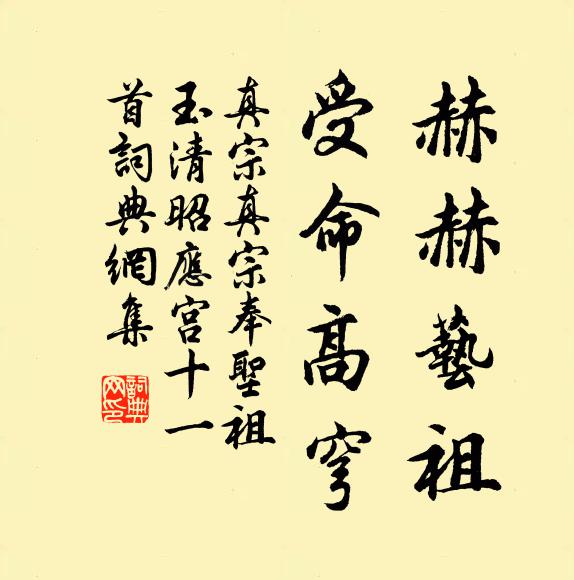 赫赫藝祖
受命高穹
真宗真宗奉聖祖
玉清昭應宮十一
首詞典網集
詞典
网印